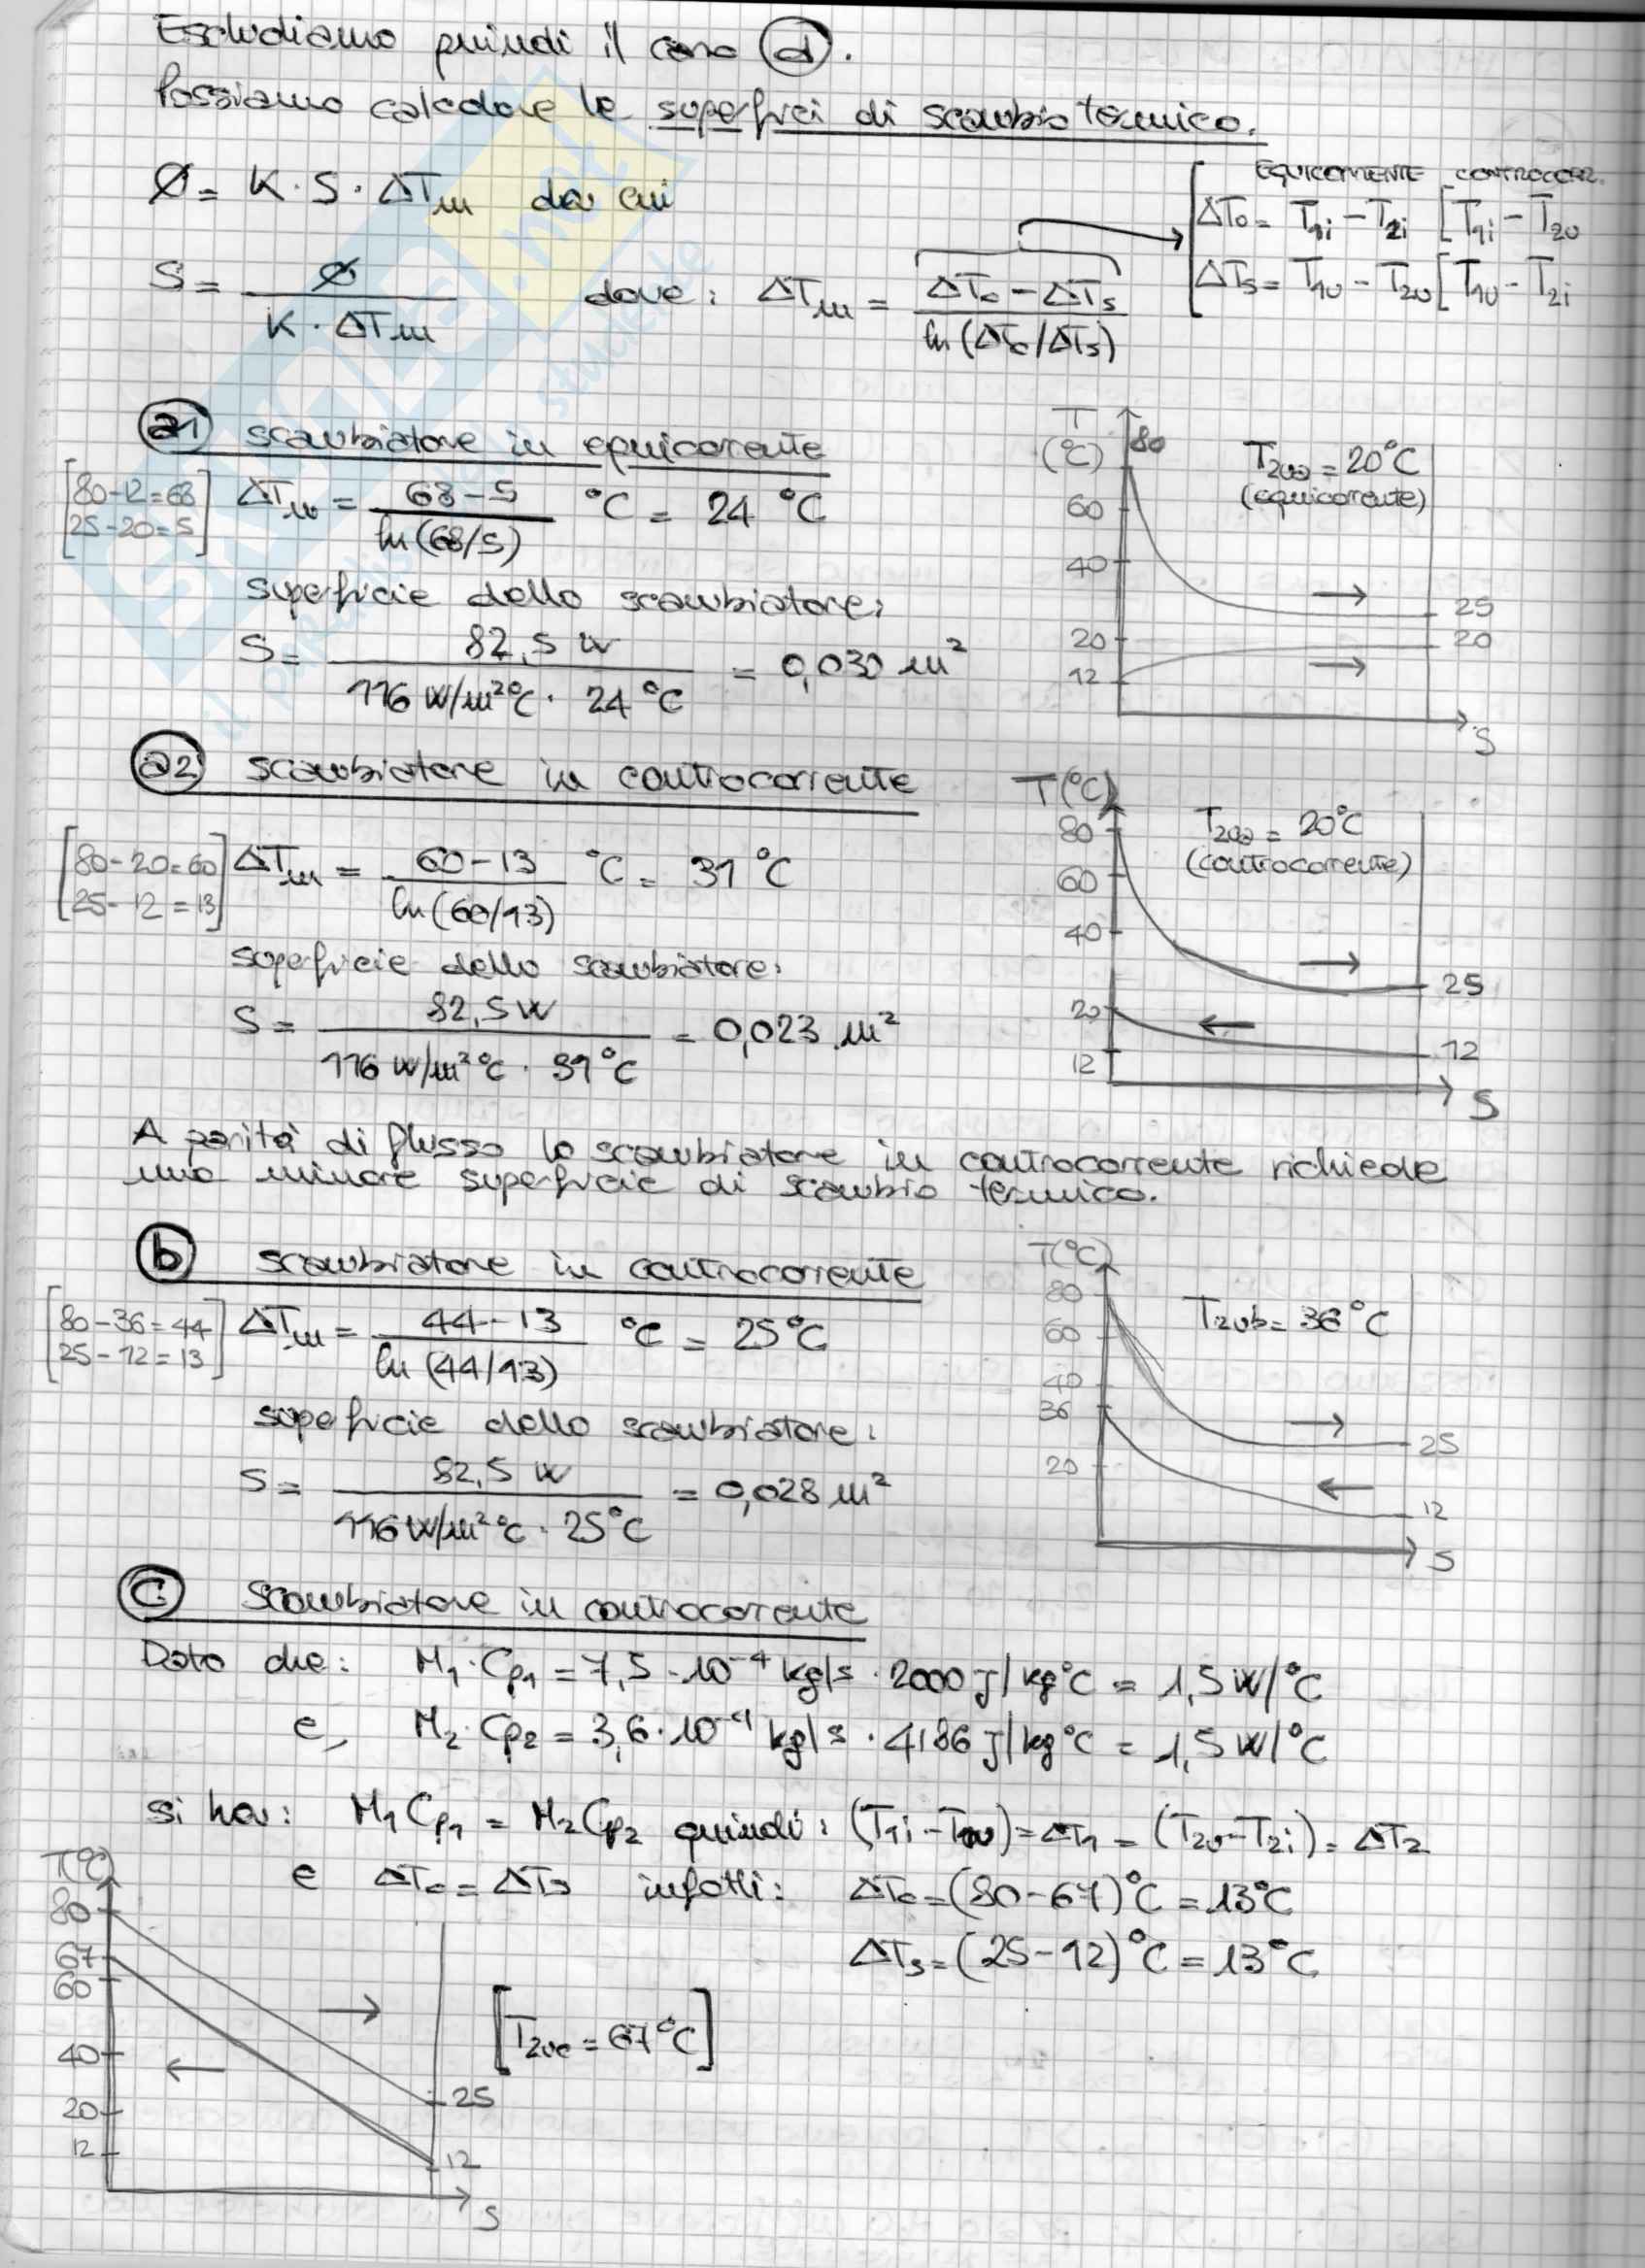 Escludiamo quindi il caso (d).
Possiamo calcolare le superfici di scambio termico.
EQUICORRENTE CONTROCORR.
Ø = K · S · ΔTm da cui
ΔTo = T1i - T2i [T1i - T2u
ΔTs = T1u - T2u [T1u - T2i
S = Ø / K · ΔTm dove: ΔTm = ΔTo - ΔTs / ln (ΔTo/ΔTs)
(a1) scambiatore in equicorrente
[80-12=68
25-20=5]
ΔTm = 68-5 / ln(68/5) °C = 24 °C
superficie dello scambiatore:
S = 82,5 W / 116 W/m²°C · 24 °C = 0,030 m²
T (°C)
80
60
40
20
12
T2ua = 20°C
(equicorrente)
25
20
S
(a2) scambiatore in controcorrente
[80-20=60
25-12=13]
ΔTm = 60-13 / ln(60/13) °C = 31 °C
superficie dello scambiatore:
S = 82,5 W / 116 W/m²°C · 31°C = 0,023 m²
T(°C)
80
60
40
20
12
T2ua = 20°C
(controcorrente)
25
12
S
A parità di flusso lo scambiatore in controcorrente richiede
una minore superficie di scambio termico.
(b) scambiatore in controcorrente
[80-36=44
25-12=13]
ΔTm = 44-13 / ln (44/13) °C = 25°C
superficie dello scambiatore:
S = 82,5 W / 116 W/m²°C · 25°C = 0,028 m²
T(°C)
80
60
40
36
20
T2ub = 36°C
25
12
S
(c) scambiatore in controcorrente
Dato che: M1 · Cp1 = 7,5 · 10⁻⁴ kg/s · 2000 J/kg°C = 1,5 W/°C
e, M2 · Cp2 = 3,6 · 10⁻⁴ kg/s · 4186 J/kg°C = 1,5 W/°C
si ha: M1 Cp1 = M2 Cp2 quindi: (T1i - T1u) = ΔT1 = (T2u - T2i) = ΔT2
e ΔTo = ΔTs infatti: ΔTo = (80-67)°C = 13°C
ΔTs = (25-12)°C = 13°C
T(°C)
80
67
60
40
20
12
[T2uc = 67°C]
25
12
S